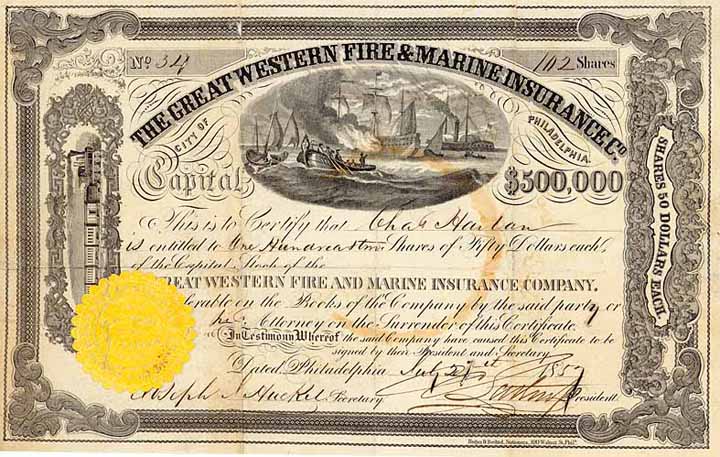 No 34
102 Shares
THE GREAT WESTERN FIRE & MARINE INSURANCE Co.
CITY OF
PHILADELPHIA.
Capital
$500,000
This is to Certify that Chas Harlan
is entitled to One Hundred & two Shares of Fifty Dollars each,
of the Capital Stock of the
GREAT WESTERN FIRE AND MARINE INSURANCE COMPANY.
ferable on the Books of the Company by the said party or
his Attorney on the Surrender of this Certificate
In Testimony Whereof the said Company have caused this Certificate to be
signed by their President and Secretary
Dated Philadelphia July 21st 1857
Joseph Huckel Secretary.
President.
SHARES 50 DOLLARS EACH.
Stationers, Walnut St. Phila.